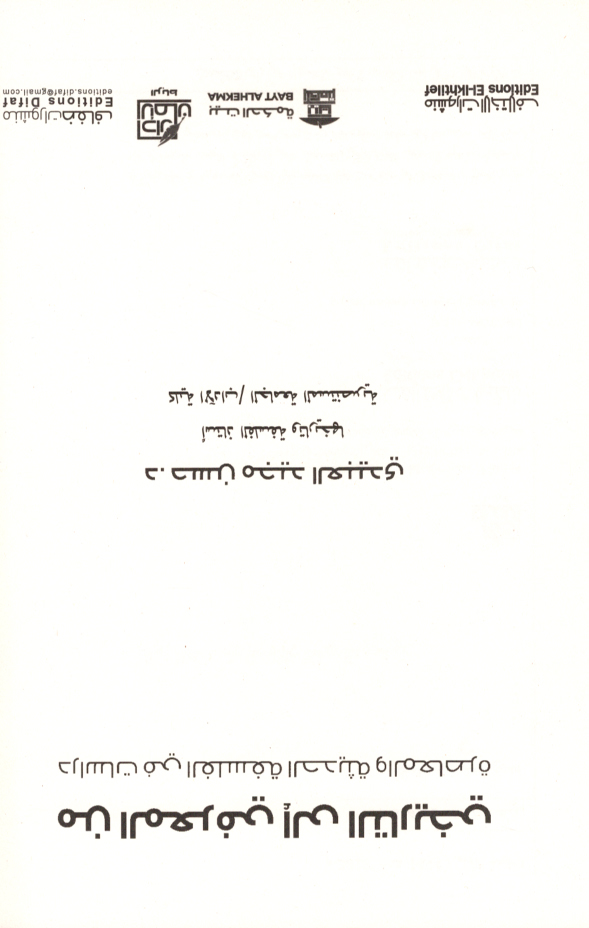 من المعرفي إلى التاريخي
دراسات في الفلسفة الحديثة والمعاصرة
د. حسن مجيد العبيدي
أستاذ الفلسفة وتاريخها
كلية الآداب/ الجامعة المستنصرية
منشورات الاختلاف
Editions El-Ikhtilef
بيت الحكمة
BAYT ALHEKMA
دار الأمان
الرباط
منشورات ضفاف
Editions Difaf
editions.difaf@gmail.com